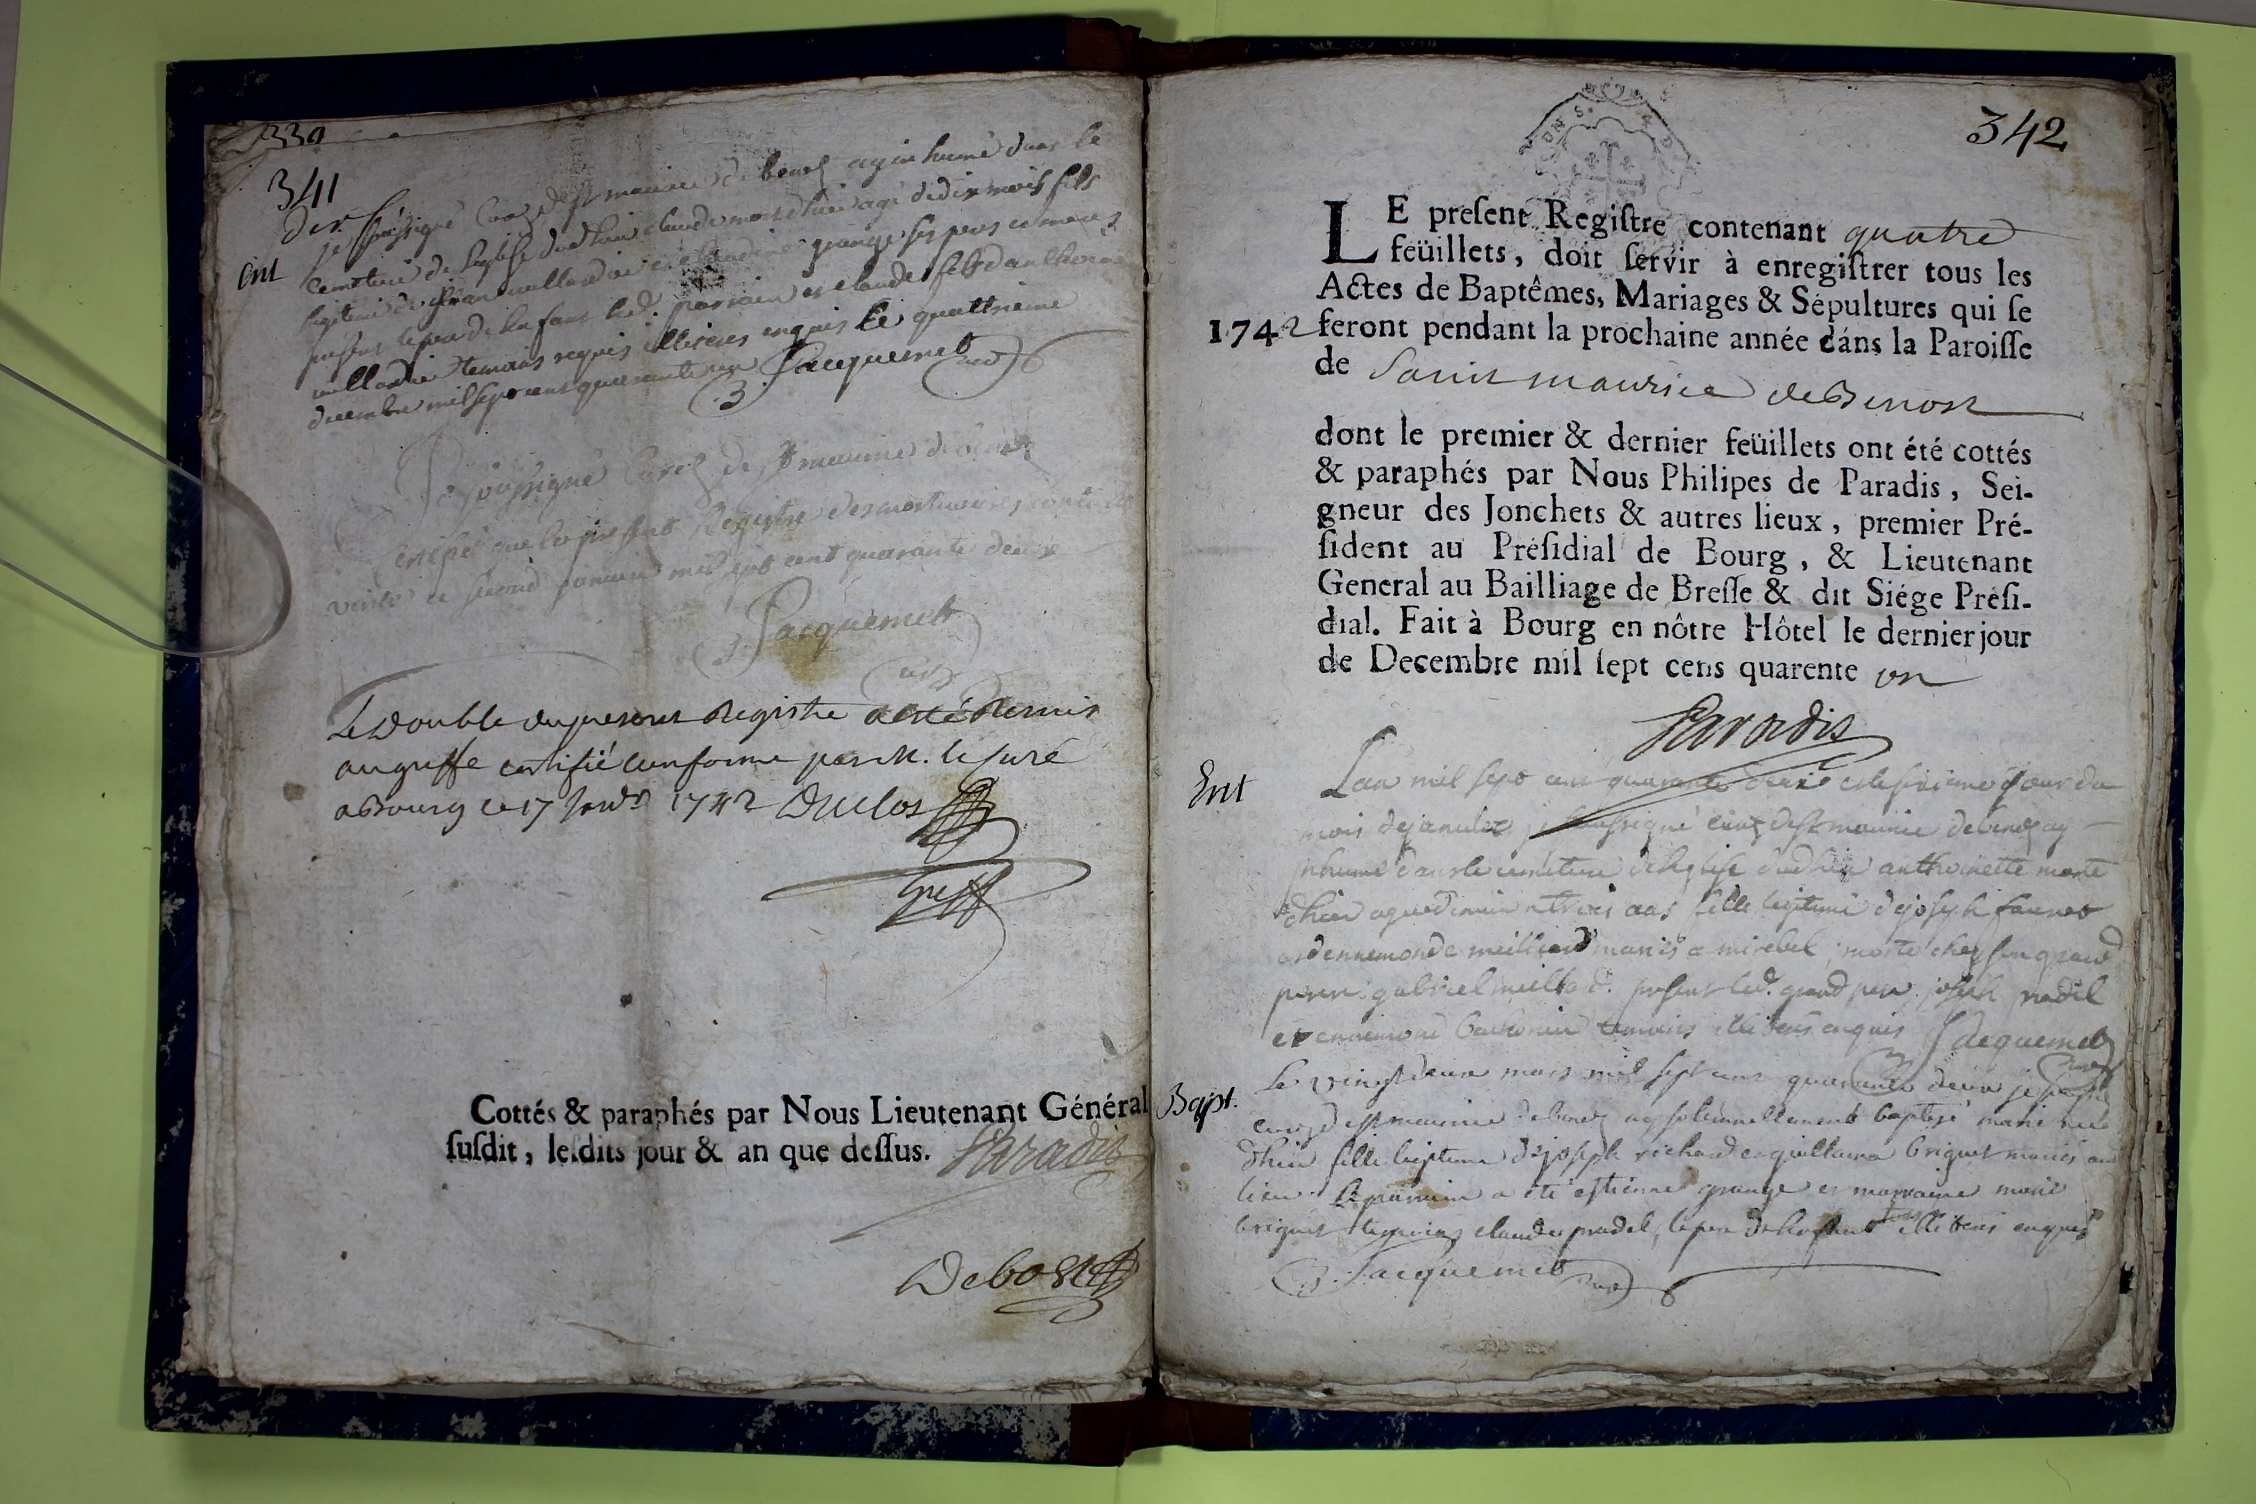 339
341
der
ent
Je soussigné Curé de st maurice de benost ay inhumé dans le
cemetiere de l'eglise dud lieu claude mort d'hier agé de dix mois fils
legitime de et claudine grange ses pere et mere
present le pere de l'enfant led. parrain et claude fils d'anthoine
temoins requis illiterés enquis le quattrieme
decembre mil sept cent quarante un Jacquemet
curé
Je soussigné Curé de st maurice de benost
certifié que le present Registre des mortuaires contient
verité ce second janvier mil sept cent quarante deux
Jacquemet
curé
Le double du present Registre a esté Remis
au greffe certifié conforme par M. le curé
a Bourg ce 17 Janvr 1742 Duclos
Greff
Cottés & paraphés par Nous Lieutenant Général
susdit, lesdits jour & an que dessus. Paradis
Debost
342
LE present Registre contenant quatre
feüillets, doit servir à enregistrer tous les
Actes de Baptêmes, Mariages & Sépultures qui se
1742 feront pendant la prochaine année dáns la Paroisse
de Saint maurice de Benost
dont le premier & dernier feüillets ont été cottés
& paraphés par Nous Philipes de Paradis, Sei-
gneur des Jonchets & autres lieux, premier Pré-
sident au Présidial de Bourg, & Lieutenant
General au Bailliage de Bresse & dit Siége Prési-
dial. Fait à Bourg en nôtre Hôtel le dernier jour
de Decembre mil sept cens quarente un
Paradis
Ent
Lan mil sept cent quarante deux et le sixieme jour du
mois de janvier, je soussigné curé de st maurice de benost ay
inhumé dans le cemetiere de l'eglise dud lieu anthoinette morte
d'hier agée d'environ trois ans fille legitime de joseph
et d'ennemonde meilland mariés a mirebel, morte chez son grand
pere gabriel meilland. present led. grand pere joseph pradel
et ennemond temoins illiterés enquis Jacquemet
curé
Bapt.
Le vingt deux mars mil sept cent quarante deux je soussigné
curé de st maurice de benost ay solemnellement baptisé marie née
d'hier fille legitime de joseph richard et guillauma briguet mariés aud
lieu. Le parrain a été estienne grange et marraine marie
briguet temoins claude pradel, le pere de l'enfant tous illiterés enquis
Jacquemet curé